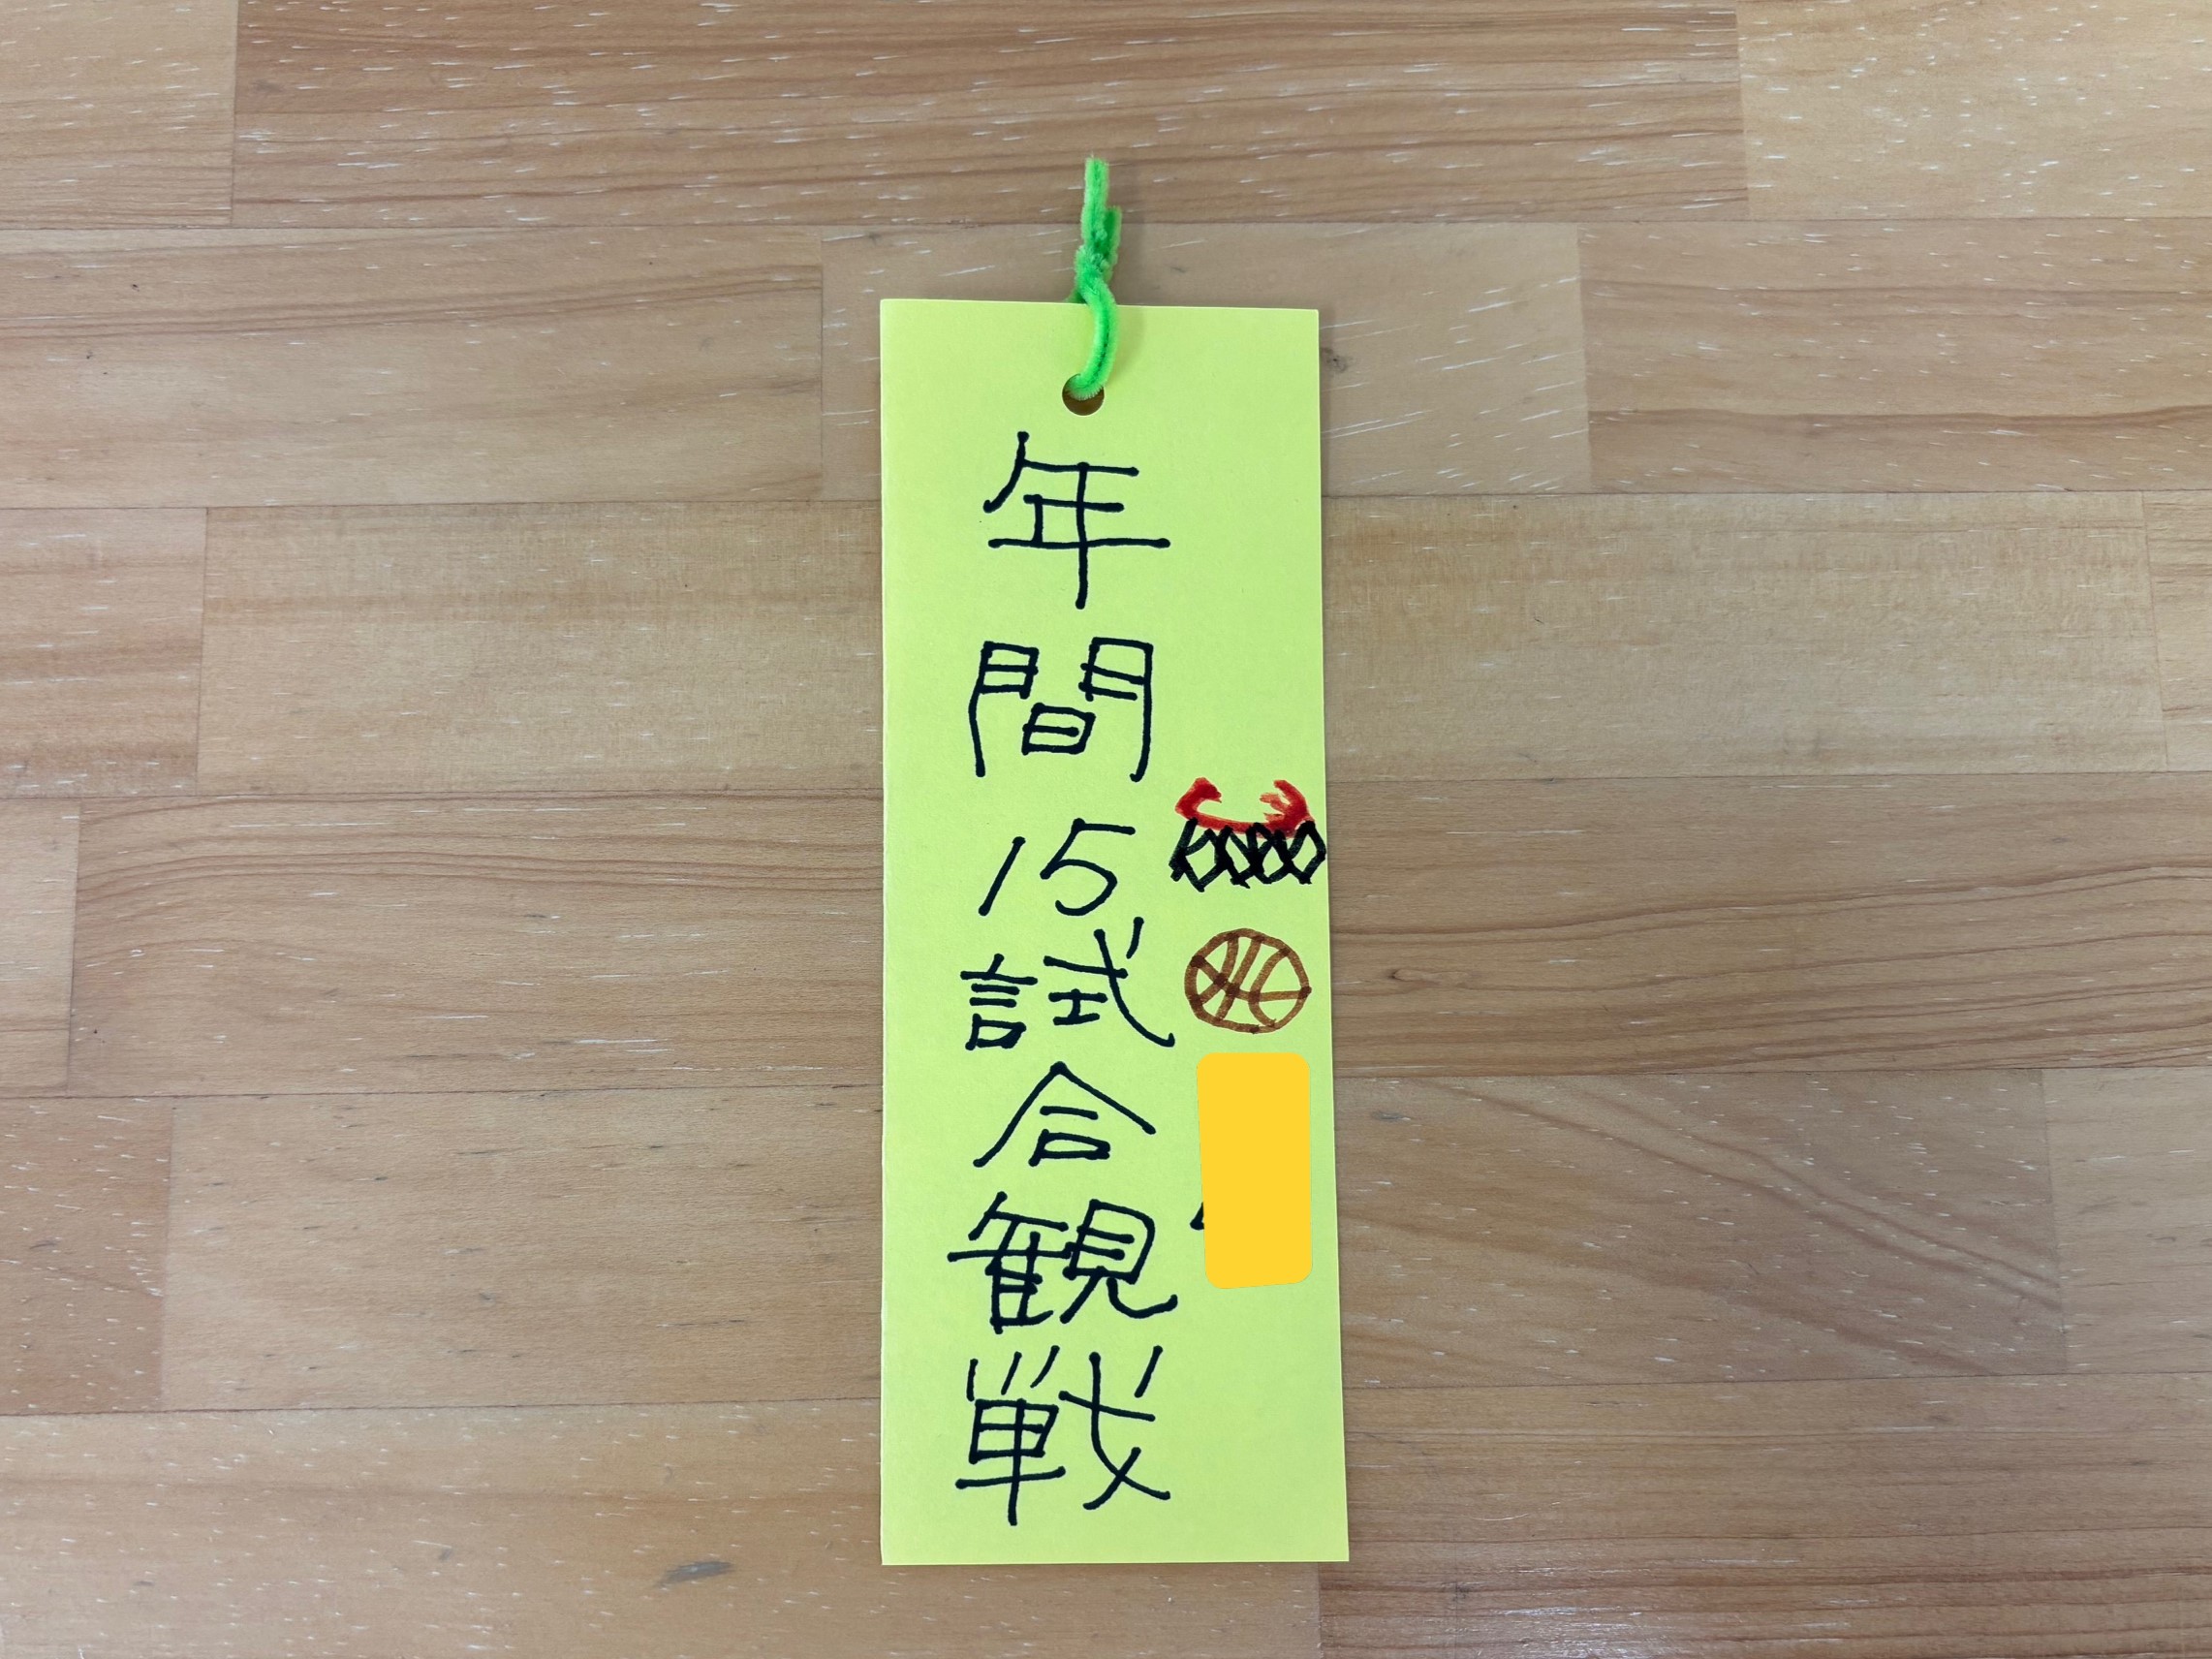 年間15試合観戦